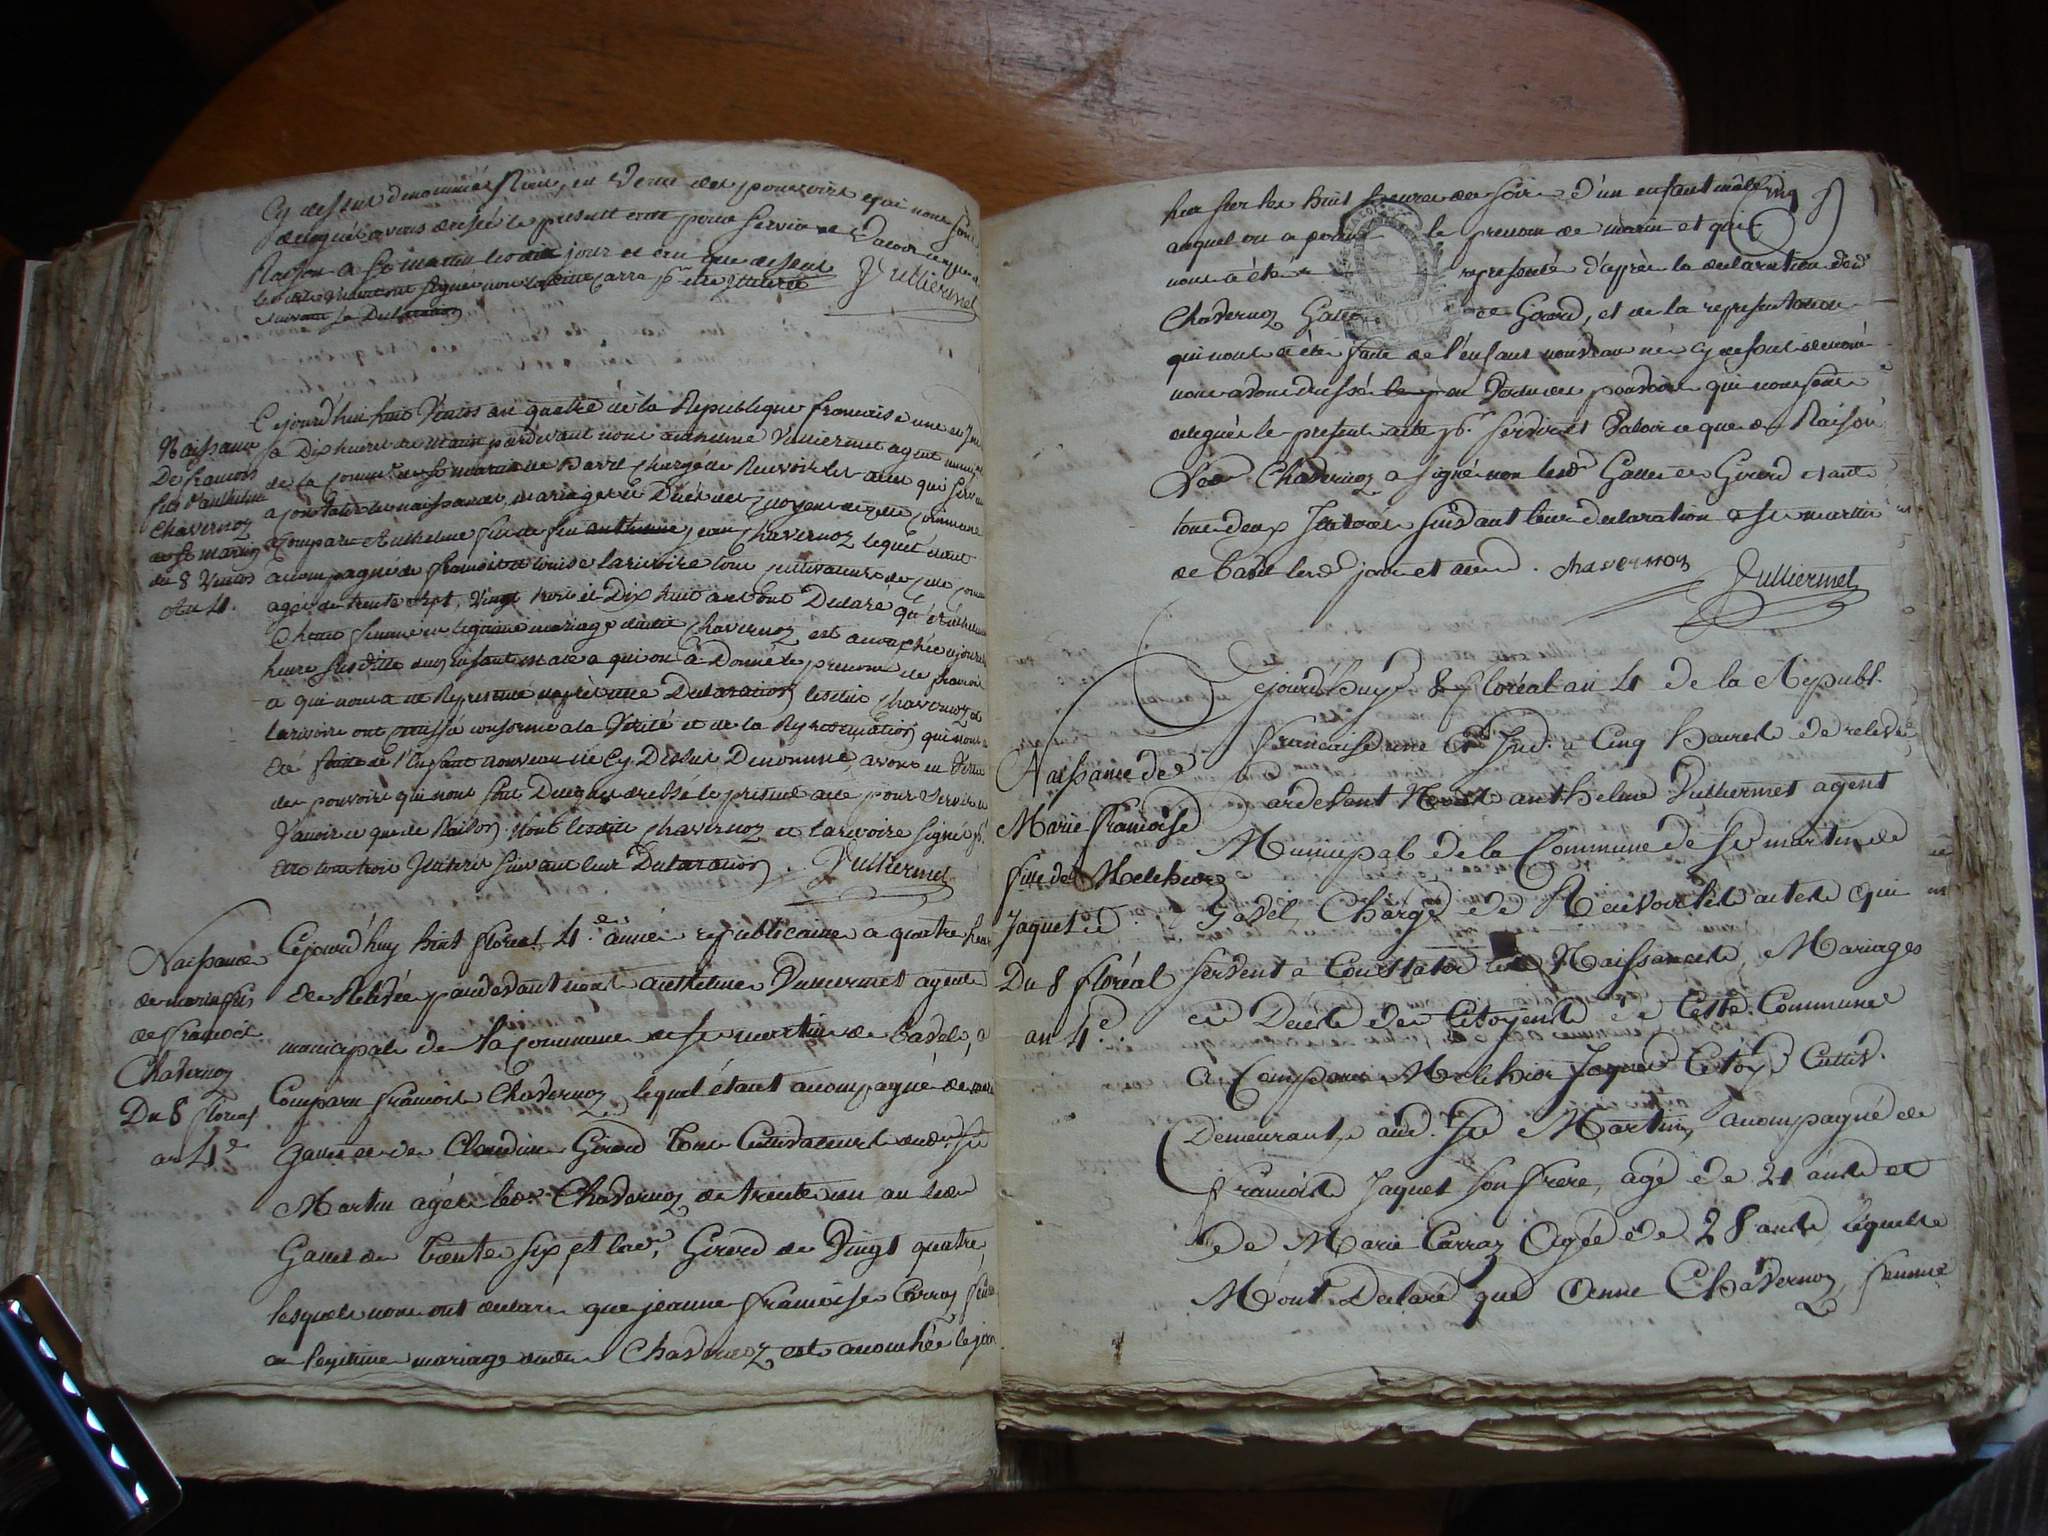 Cy dessus denommés Nous, en Vertu des pouvoirs qui nous sont
delegués avons dressé le present acte pour Servir et Valoir ce que de
Raison a St martin lesdits jour et an que dessus
suivant sa Declaration
Vulliermet
Naissance
De francois
fils d'anthelme
Chavernoz
de St martin
du 8 Ventos
An 4.
Cejourd'hui huit Ventos an quatre de la Republique francaise une et Ind
a Dix heures du matin pardevant nous anthelme Vulliermet agent municipal
de la commune de St martin de Bavel chargé de Recevoir les actes qui servent
a constater les naissances, mariages et Décès des Citoyens de cette Commune
a Comparu Anthelme fils de feu anthelme Chavernoz lequel étant
accompagné de francois et Louise Larivoire tous cultivateurs de cette commune
agés de trente sept, Vingt trois et Dix huit ans ont Declaré
femme en legitime mariage dudit Chavernoz est accouchée
heure susditte d'un Enfant male a qui on a Donné le prenom de francois
a qui nous a été Représenté d'après une Declaration lesdits Chavernoz et
Larivoire ont conforme a la Vérité et de la Représentation qui nous a
été faite de l'Enfant nouveau né Cy Dessus Dénommé, avons en Vertu
des pouvoirs qui nous sont Delegués dressé le present acte pour servir et
Valoir ce que de Raison. Nont lesdits Chavernoz et Larivoire signé pr.
être tous trois Illiterés suivant leur Declaration.
Vulliermet
Naissance
de marin fils
de francois
Chavernoz
Du 8 floreal
an 4e
Cejourd'huy huit floreal 4.e année republicaine a quatre heures
de Relevée pardevant nous anthelme Vulliermet agent
municipal de la commune de St martin de Bavel, a
Comparu francois Chavernoz lequel étant acompagné de
Gallet et de Claudine Girod tous Cultivateurs aud. St
Martin agés led. Chavernoz de trente un an led.
Gallet de trente six et lad. Girod de Vingt quatre
lesquels nous ont declaré que jeanne francoise Carraz femme
en legitime mariage dudit Chavernoz est acouchée le jour
hier sur les huit heures du soir d'un enfant mâle
cinq
auquel on a donné le prenom de marin et qui
nous a été representé d'après la declaration dud
Chavernoz Gallet et Girod, et de la representation
qui nous a été faite de l'enfant nouveau né cy dessus denomé
nous avons dressé en Vertu des pouvoirs qui nous sont
delegués le present acte pr. servir et Valoir ce que de Raison
Led. Chavernoz a signé non lesd. Gallet et Girod etant
tous deux Illiterés suivant leur declaration a St martin
de Bavel lesd. jour et an.
chavernoz
Vulliermet
Naissance de
Marie francoise
fille de Melchior
Jaquet
Du 8 floréal
an 4e.
Cejourd'huy 8 floréal an 4 de la Republ.
francaise une Et Ind. a Cinq heures de relevée
Pardevant Nous anthelme Vulliermet agent
Municipal de la Commune de St martin de
Bavel, Chargé de Recevoir les actes qui
servent à Constater les Naissances, Mariages
et Décès des Citoyens de Cette Commune
a Comparu Melchior Jaquet Citoy. Cultiv.
Demeurant aud. St Martin, acompagné de
francois Jaquet son frere, agé de 21 ans et
de Marie Carraz Agée de 28 ans lequels
M'ont Declaré que Anne Chavernoz, femme